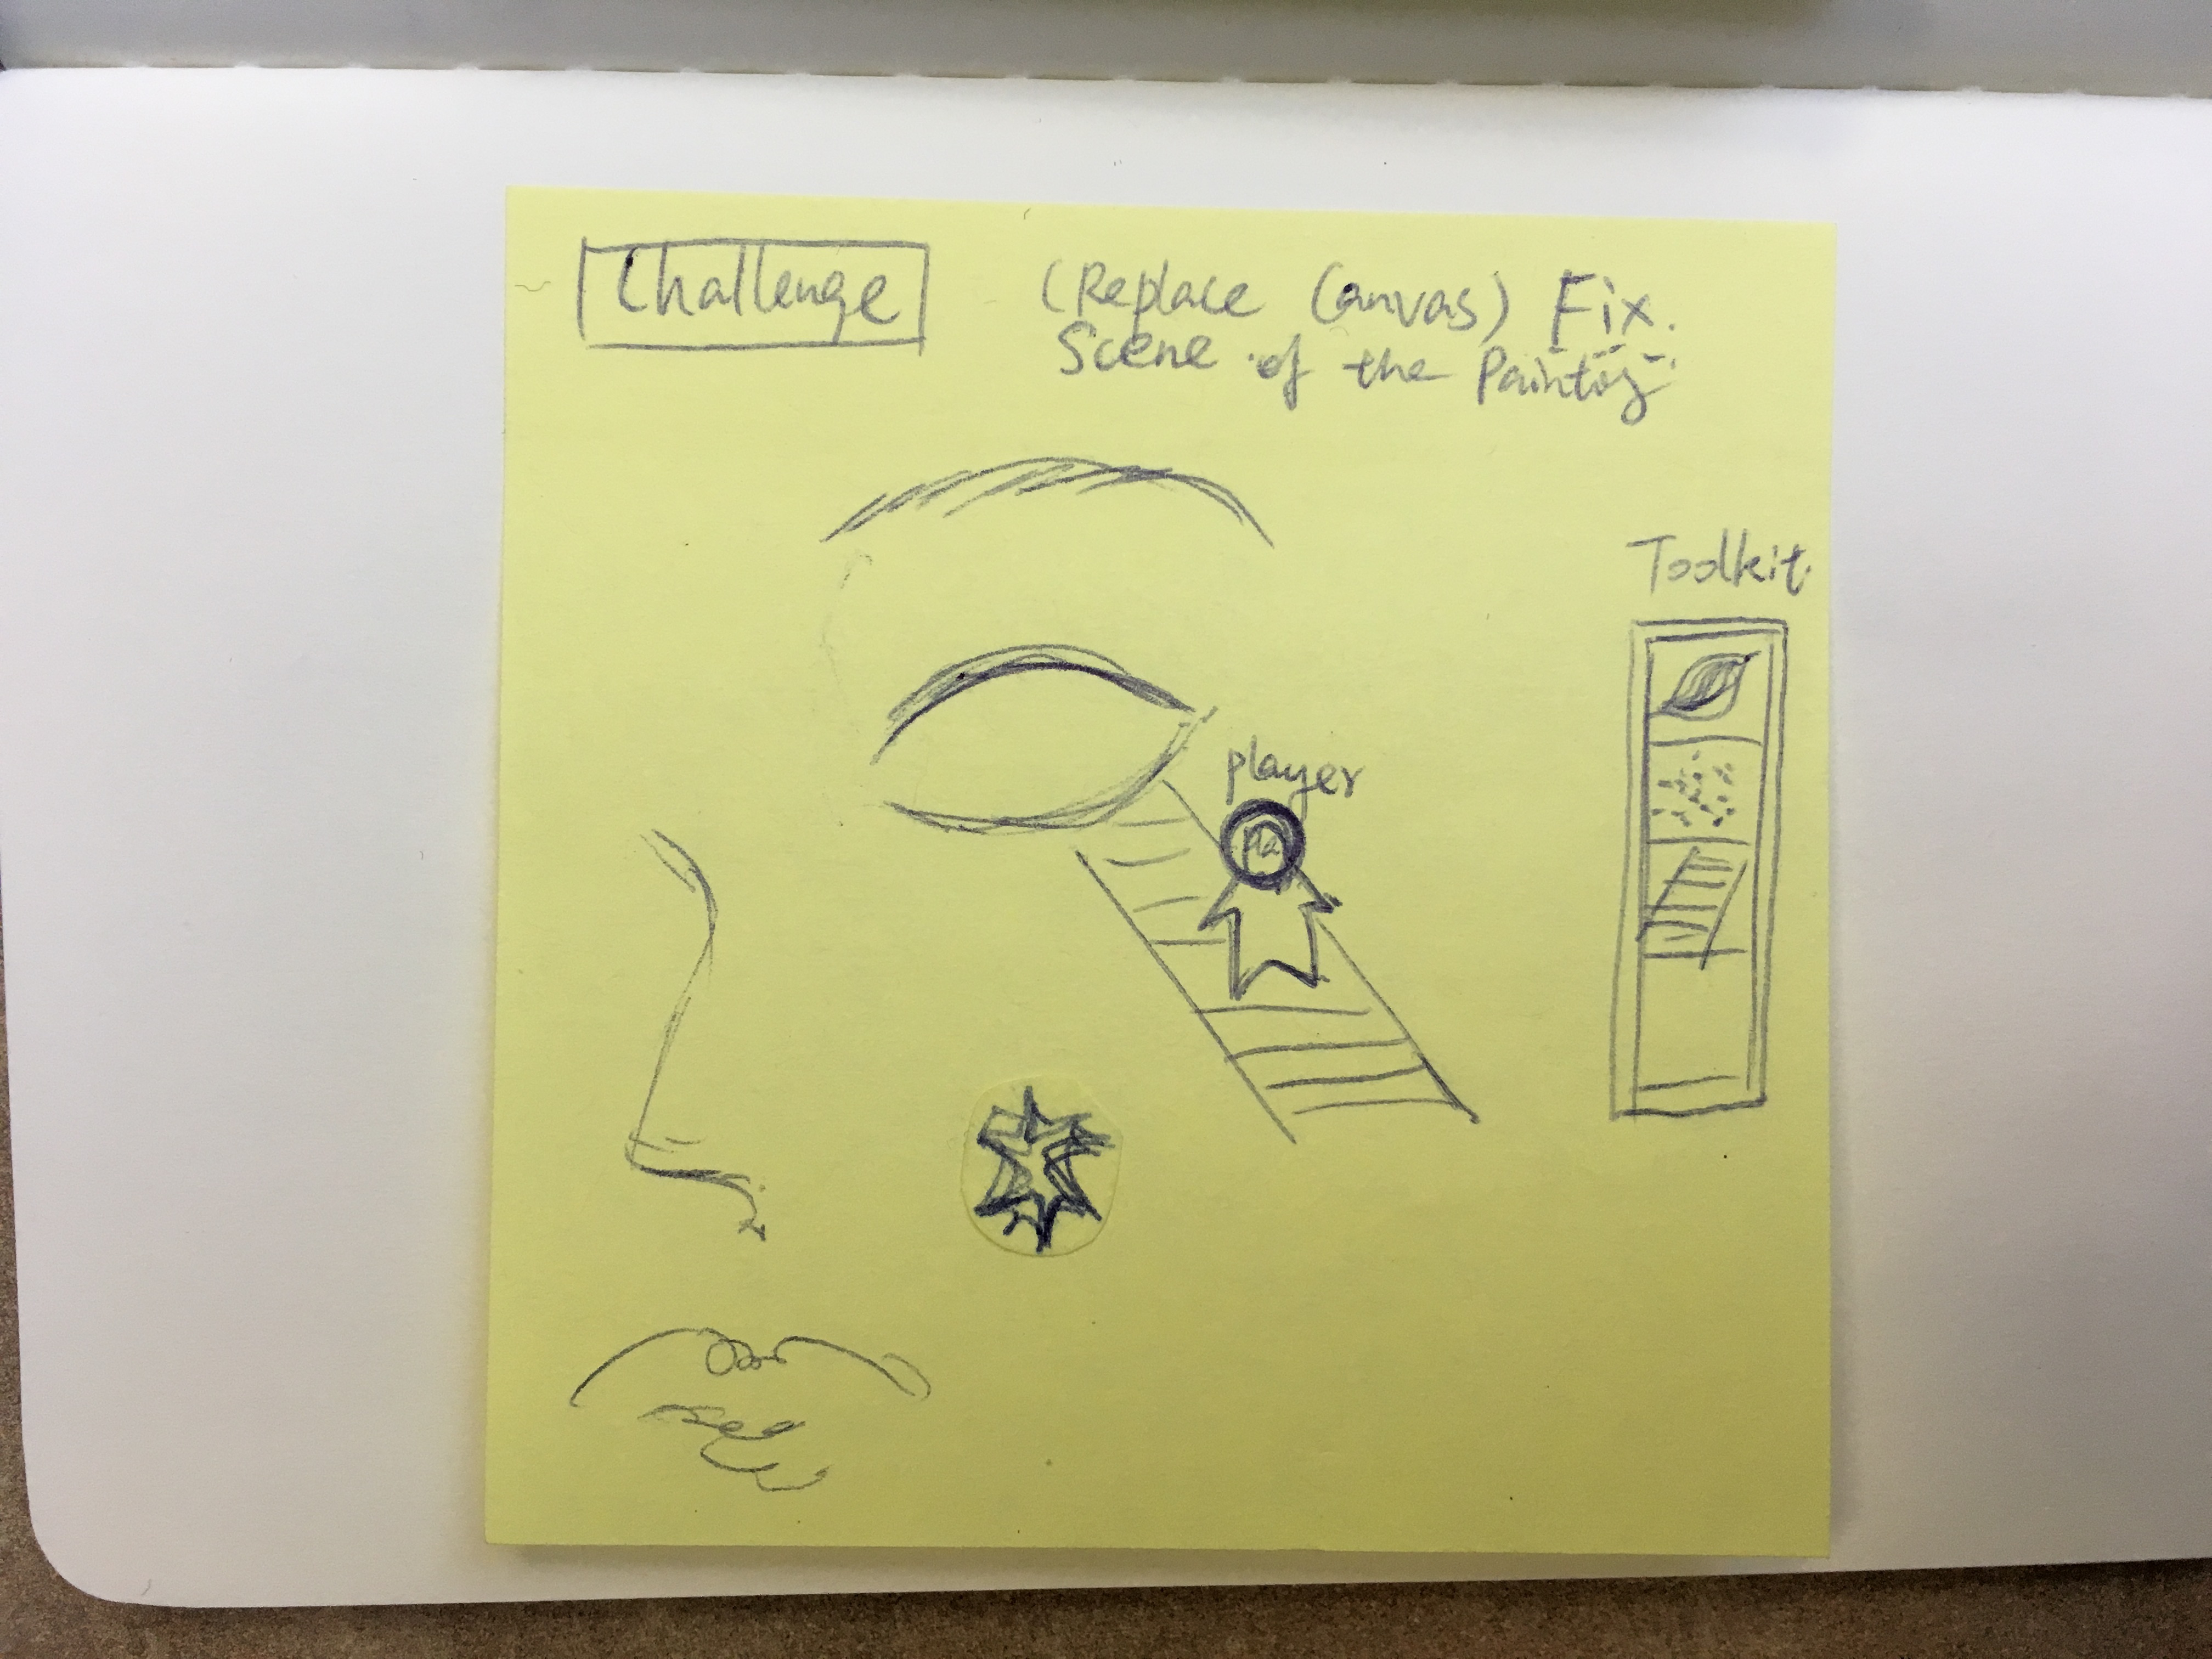 Challenge
(Replace Canvas) Fix.
Scene of the Painting
Toolkit
player
Pla